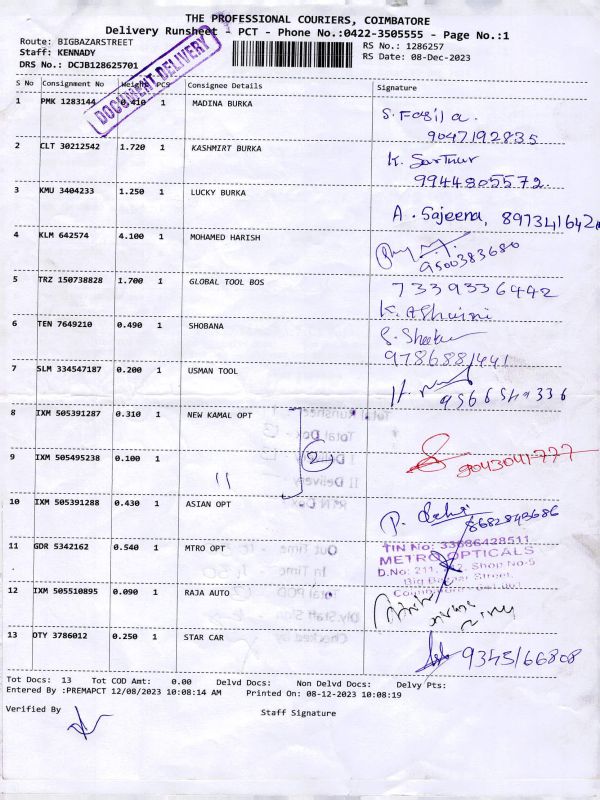 THE PROFESSIONAL COURIERS, COIMBATORE
Delivery Runsheet - PCT - Phone No.:0422-3505555 - Page No.:1
Route: BIGBAZARSTREET
RS No.: 1286257
Staff: KENNADY
RS Date: 08-Dec-2023
DRS No.: DCJB128625701
DOCUMENT DELIVERY
S No Consignment No Weight PCS Consignee Details Signature
1 PMK 1283144 0.410 1 MADINA BURKA S. Fasila.
9047192835
2 CLT 30212542 1.720 1 KASHMIRT BURKA K.
9944805572.
3 KMU 3404233 1.250 1 LUCKY BURKA A. Sajeena, 897341642
4 KLM 642574 4.100 1 MOHAMED HARISH
9500383680
5 TRZ 150738828 1.700 1 GLOBAL TOOL BOS 7339336442
K. AShwini
6 TEN 7649210 0.490 1 SHOBANA
9786881441
7 SLM 334547187 0.200 1 USMAN TOOL
8 IXM 505391287 0.310 1 NEW KAMAL OPT
2
9 IXM 505495238 0.100 1 " 9043041777
10 IXM 505391288 0.430 1 ASIAN OPT P.
8682843686
11 GDR 5342162 0.540 1 MTRO OPT TIN No: 33686428511
METRO OPTICALS
D.No: 211, Shop No-5
Big Bazaar Street,
12 IXM 505510895 0.090 1 RAJA AUTO
13 OTY 3786012 0.250 1 STAR CAR 9345166808
Tot Docs: 13 Tot COD Amt: 0.00 Delvd Docs: Non Delvd Docs: Delvy Pts:
Entered By :PREMAPCT 12/08/2023 10:08:14 AM Printed On: 08-12-2023 10:08:19
Verified By Staff Signature